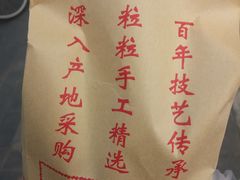 百年技艺传承
粒粒手工精选
深入产地采购